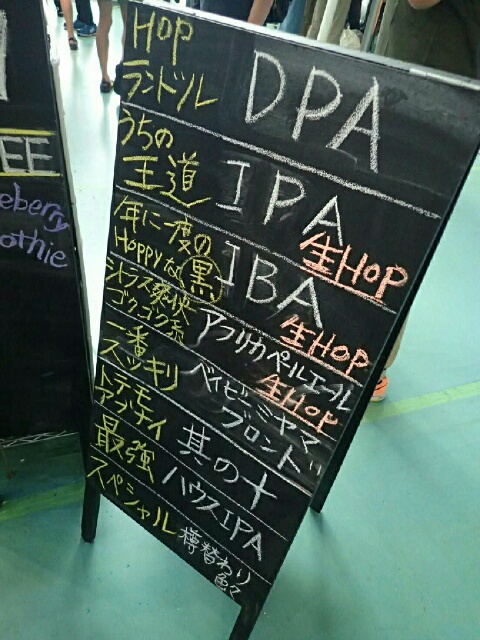 HOP
ランドル
DPA
うちの
王道
IPA
生HOP
年に一度の
Hoppyな黒
IBA
生HOP
シトラス爽快
ゴクゴク系
アフリカペールエール
生HOP
一番
スッキリ
ベイビーミヤマ
ブロンド
トテモ
アブナイ
其の十
最強
ハウスIPA
スペシャル
樽替わり
色々
EE
eberry
othie